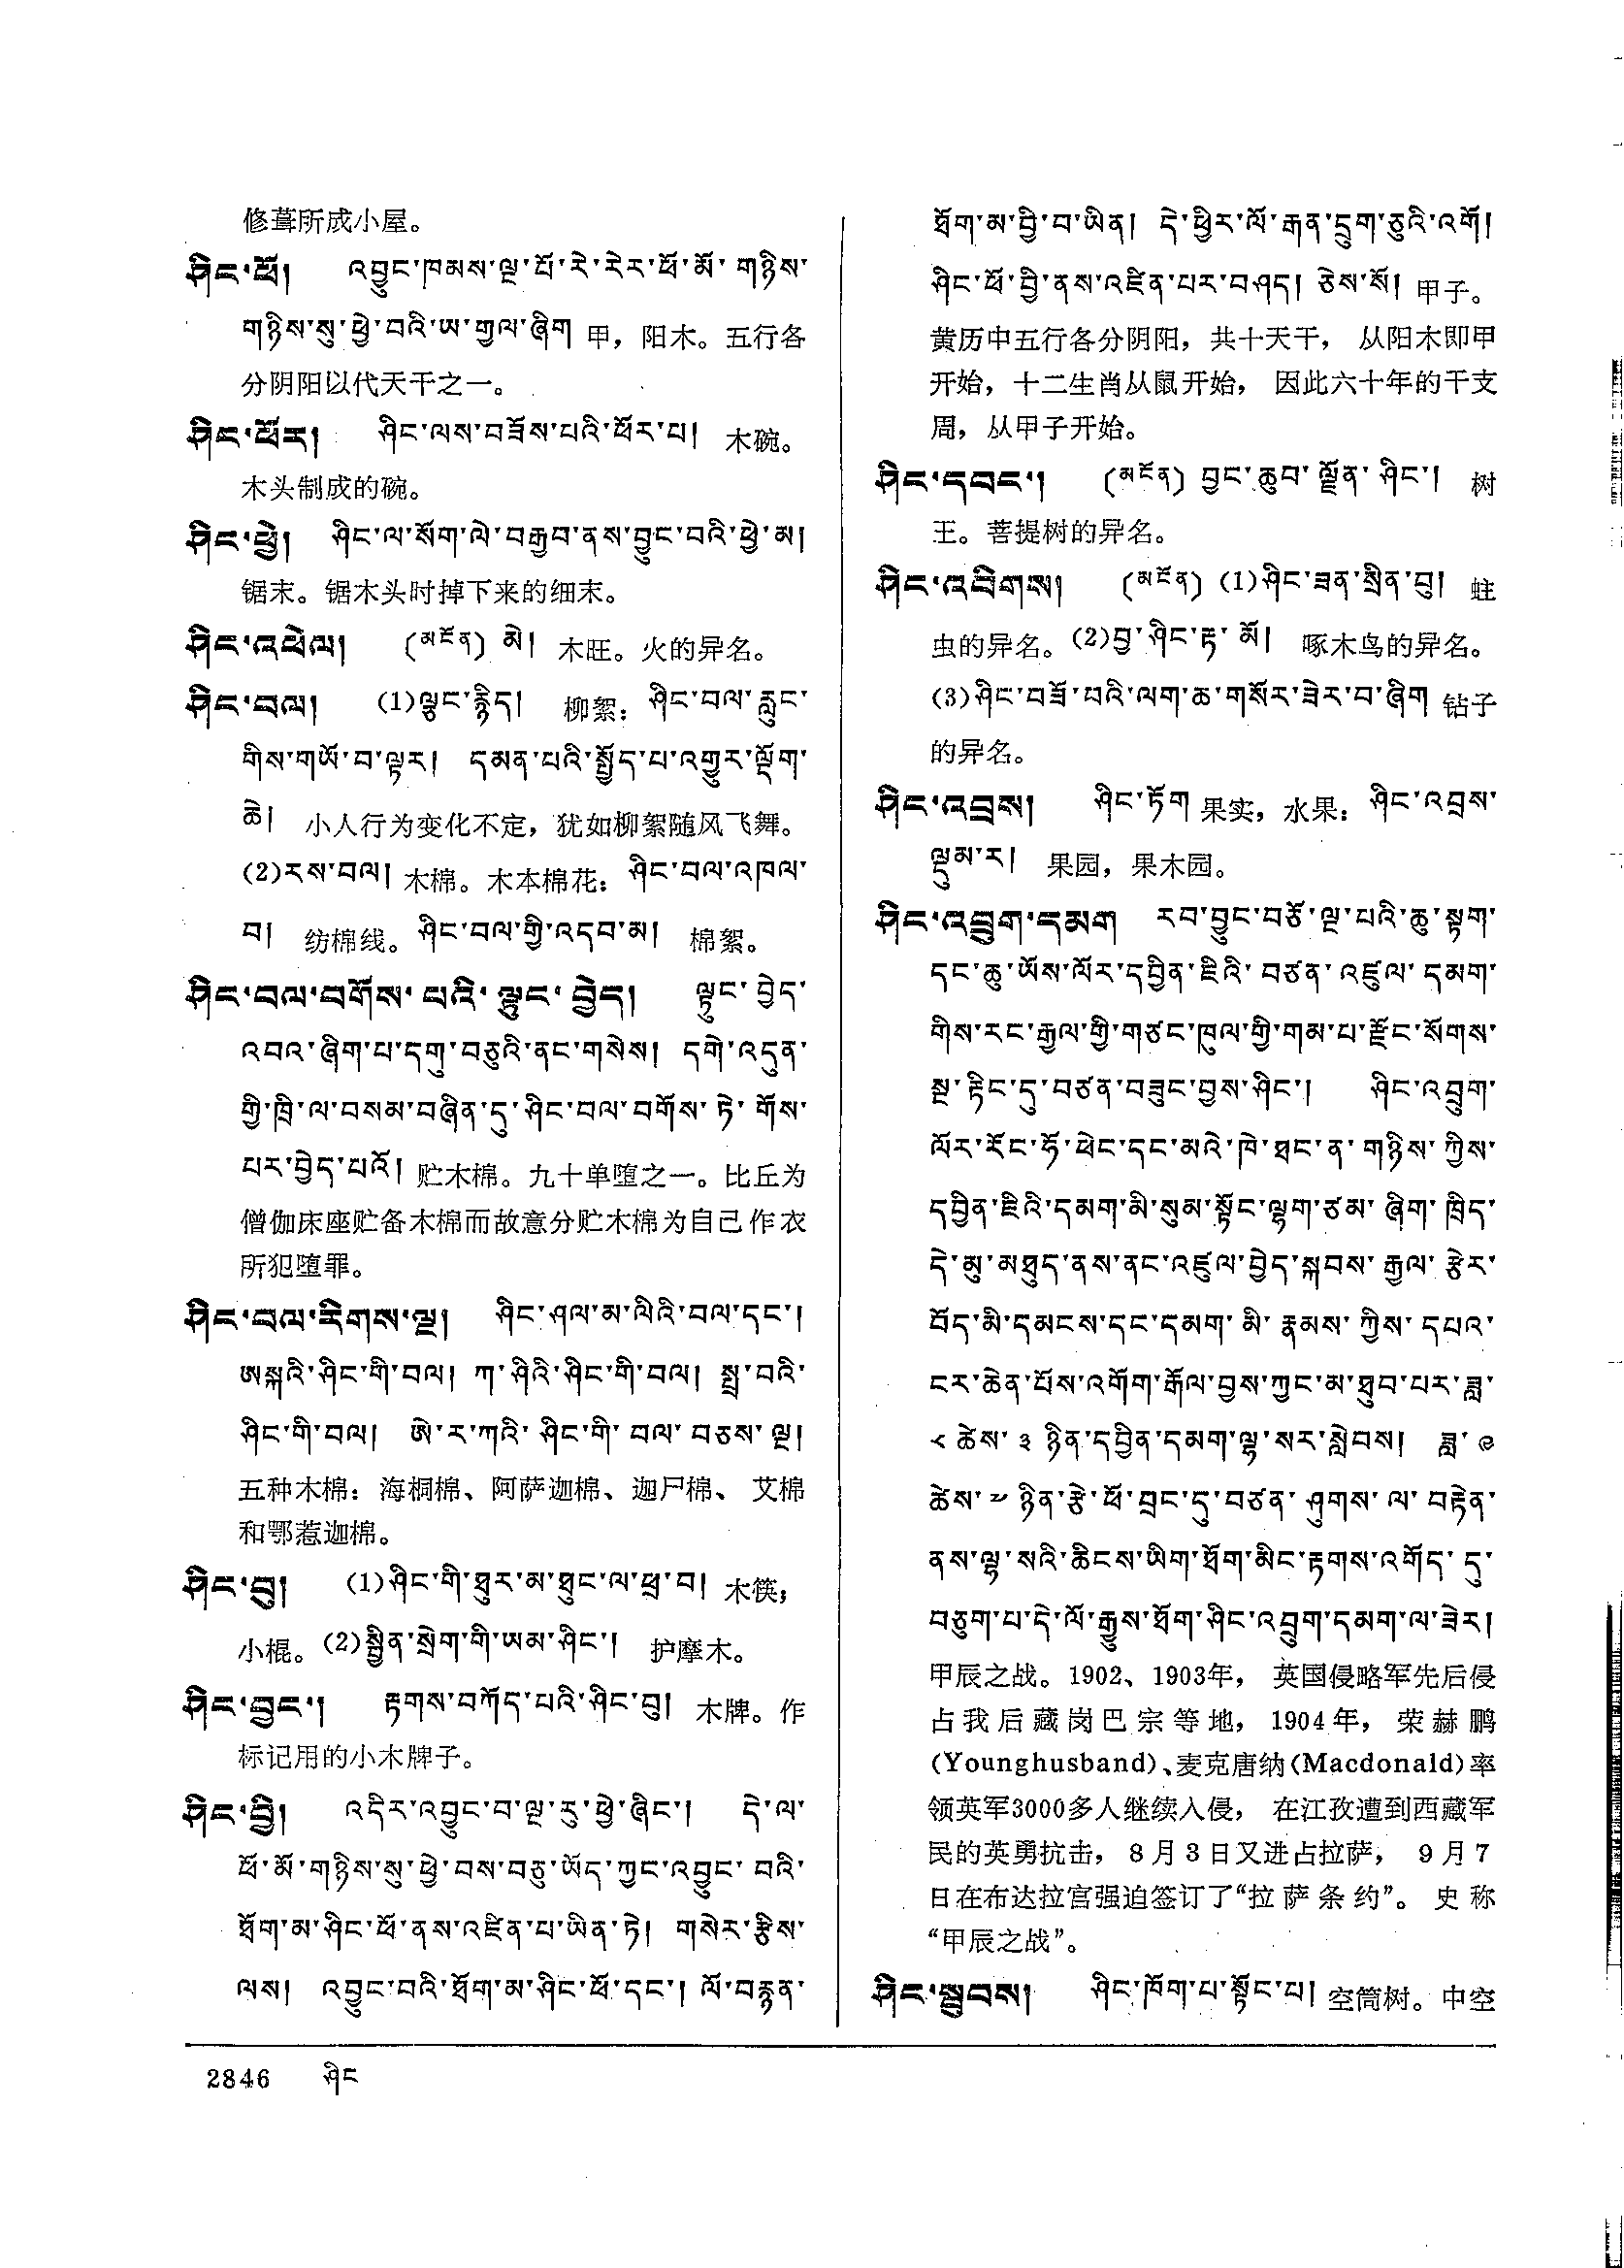 修葺所成小屋。
ཤིང་ཕོ། འབྱུང་ཁམས་ལྔ་པོ་རེ་རེར་ཕོ་མོ་གཉིས་
གཉིས་སུ་ཕྱེ་བའི་ཨ་གྱལ་ཞིག 甲，阳木。五行各
分阴阳以代天干之一。
ཤིང་ཕོར། ཤིང་ལས་བཟོས་པའི་ཕོར་པ། 木碗。
木头制成的碗。
ཤིང་ཕྱེ། ཤིང་ལ་སོག་ལེ་བརྒྱབ་ནས་བྱུང་བའི་ཕྱེ་མ།
锯末。锯木头时掉下来的细末。
ཤིང་འཕེལ། (མངོན) མེ། 木旺。火的异名。
ཤིང་བལ། (1)ལྕང་རྙིད། 柳絮：ཤིང་བལ་རླུང་
གིས་གཡོ་བ་ལྟར། དམན་པའི་སྤྱོད་པ་འགྱུར་ལྡོག་
ཆེ། 小人行为变化不定，犹如柳絮随风飞舞。
(2)རས་བལ། 木棉。木本棉花：ཤིང་བལ་འཁལ་
བ། 纺棉线。ཤིང་བལ་གྱི་འདབ་མ། 棉絮。
ཤིང་བལ་བགོས་པའི་ལྟུང་བྱེད། ལྟུང་བྱེད་
འབའ་ཞིག་པ་དགུ་བཅུའི་ནང་གསེས། དགེ་འདུན་
གྱི་ཁྲི་ལ་བསམ་བཞིན་དུ་ཤིང་བལ་བགོས་ཏེ་གོས་
པར་བྱེད་པའོ། 贮木棉。九十单堕之一。比丘为
僧伽床座贮备木棉而故意分贮木棉为自己作衣
所犯堕罪。
ཤིང་བལ་རིགས་ལྔ། ཤིང་ཤལ་མ་ལིའི་བལ་དང་།
ཨསྐའི་ཤིང་གི་བལ། ཀ་ཤིའི་ཤིང་གི་བལ། སྤྲ་བའི་
ཤིང་གི་བལ། ཨེ་ར་ཀའི་ཤིང་གི་བལ་བཅས་ལྔ།
五种木棉：海桐棉、阿萨迦棉、迦尸棉、艾棉
和鄂惹迦棉。
ཤིང་བུ། (1)ཤིང་གི་ཐུར་མ་ཐུང་ལ་ཕྲ་བ། 木筷；
小棍。(2)སྦྱིན་སྲེག་གི་ཡམ་ཤིང་། 护摩木。
ཤིང་བྱང་། རྟགས་བཀོད་པའི་ཤིང་བུ། 木牌。作
标记用的小木牌子。
ཤིང་བྱི། འདིར་འབྱུང་བ་ལྔ་རུ་ཕྱེ་ཞིང་། དེ་ལ་
ཕོ་མོ་གཉིས་སུ་ཕྱེ་བས་བཅུ་ཡོད་ཀྱང་འབྱུང་བའི་
ཐོག་མ་ཤིང་ཕོ་ནས་འཛིན་པ་ཡིན་ཏེ། གསེར་རྩིས་
ལས། འབྱུང་བའི་ཐོག་མ་ཤིང་ཕོ་དང་། ལོ་བརྟན་
ཐོག་མ་བྱི་བ་ཡིན། དེ་ཕྱིར་ལོ་རྒན་དྲུག་ཅུའི་འགོ།
ཤིང་ཕོ་བྱི་ནས་འཛིན་པར་བཤད། ཅེས་སོ། 甲子。
黄历中五行各分阴阳，共十天干，从阳木即甲
开始，十二生肖从鼠开始，因此六十年的干支
周，从甲子开始。
ཤིང་དབང་། (མངོན) བྱང་ཆུབ་ལྗོན་ཤིང་། 树
王。菩提树的异名。
ཤིང་འབིགས། (མངོན) (1)ཤིང་ཟན་སྲིན་བུ། 蛀
虫的异名。(2)བྱ་ཤིང་རྟ་མོ། 啄木鸟的异名。
(3)ཤིང་བཟོ་བའི་ལག་ཆ་གསོར་ཟེར་བ་ཞིག 钻子
的异名。
ཤིང་འབྲས། ཤིང་ཏོག 果实，水果：ཤིང་འབྲས་
ལྡུམ་ར། 果园，果木园。
ཤིང་འབྲུག་དམག རབ་བྱུང་བཅོ་ལྔ་པའི་ཆུ་སྟག་
དང་ཆུ་ཡོས་ལོར་དབྱིན་ཇིའི་བཙན་འཛུལ་དམག་
གིས་རང་རྒྱལ་གྱི་གཙང་ཁུལ་གྱི་གམ་པ་རྫོང་སོགས་
སྔ་རྟིང་དུ་བཙན་བཟུང་བྱས་ཤིང་། ཤིང་འབྲུག་
ལོར་རོང་ཧོ་ཕེང་དང་མའེ་ཁེ་ཐང་ན་གཉིས་ཀྱིས་
དབྱིན་ཇིའི་དམག་མི་སུམ་སྟོང་ལྷག་ཙམ་ཞིག་ཁྲིད་
དེ་མུ་མཐུད་ནས་ནང་འཛུལ་བྱེད་སྐབས་རྒྱལ་རྩེར་
བོད་མི་དམངས་དང་དམག་མི་རྣམས་ཀྱིས་དཔའ་
ངར་ཆེན་པོས་འགོག་རྒོལ་བྱས་ཀྱང་མ་ཐུབ་པར་ཟླ་
༨ ཚེས་ ༣ ཉིན་དབྱིན་དམག་ལྷ་སར་སླེབས། ཟླ་ ༩
ཚེས་ ༧ ཉིན་རྩེ་ཕོ་བྲང་དུ་བཙན་ཤུགས་ལ་བརྟེན་
ནས་ལྷ་སའི་ཆིངས་ཡིག་ཐོག་མིང་རྟགས་འགོད་དུ་
བཅུག་པ་དེ་ལོ་རྒྱུས་ཐོག་ཤིང་འབྲུག་དམག་ལ་ཟེར།
甲辰之战。1902、1903年，英国侵略军先后侵
占我后藏岗巴宗等地，1904年，荣赫鹏
(Younghusband)、麦克唐纳(Macdonald)率
领英军3000多人继续入侵，在江孜遭到西藏军
民的英勇抗击，8月3日又进占拉萨，9月7
日在布达拉宫强迫签订了“拉萨条约”。史称
“甲辰之战”。
ཤིང་སྦུབས། ཤིང་ཁོག་པ་སྟོང་པ། 空筒树。中空
2846 ཤིང